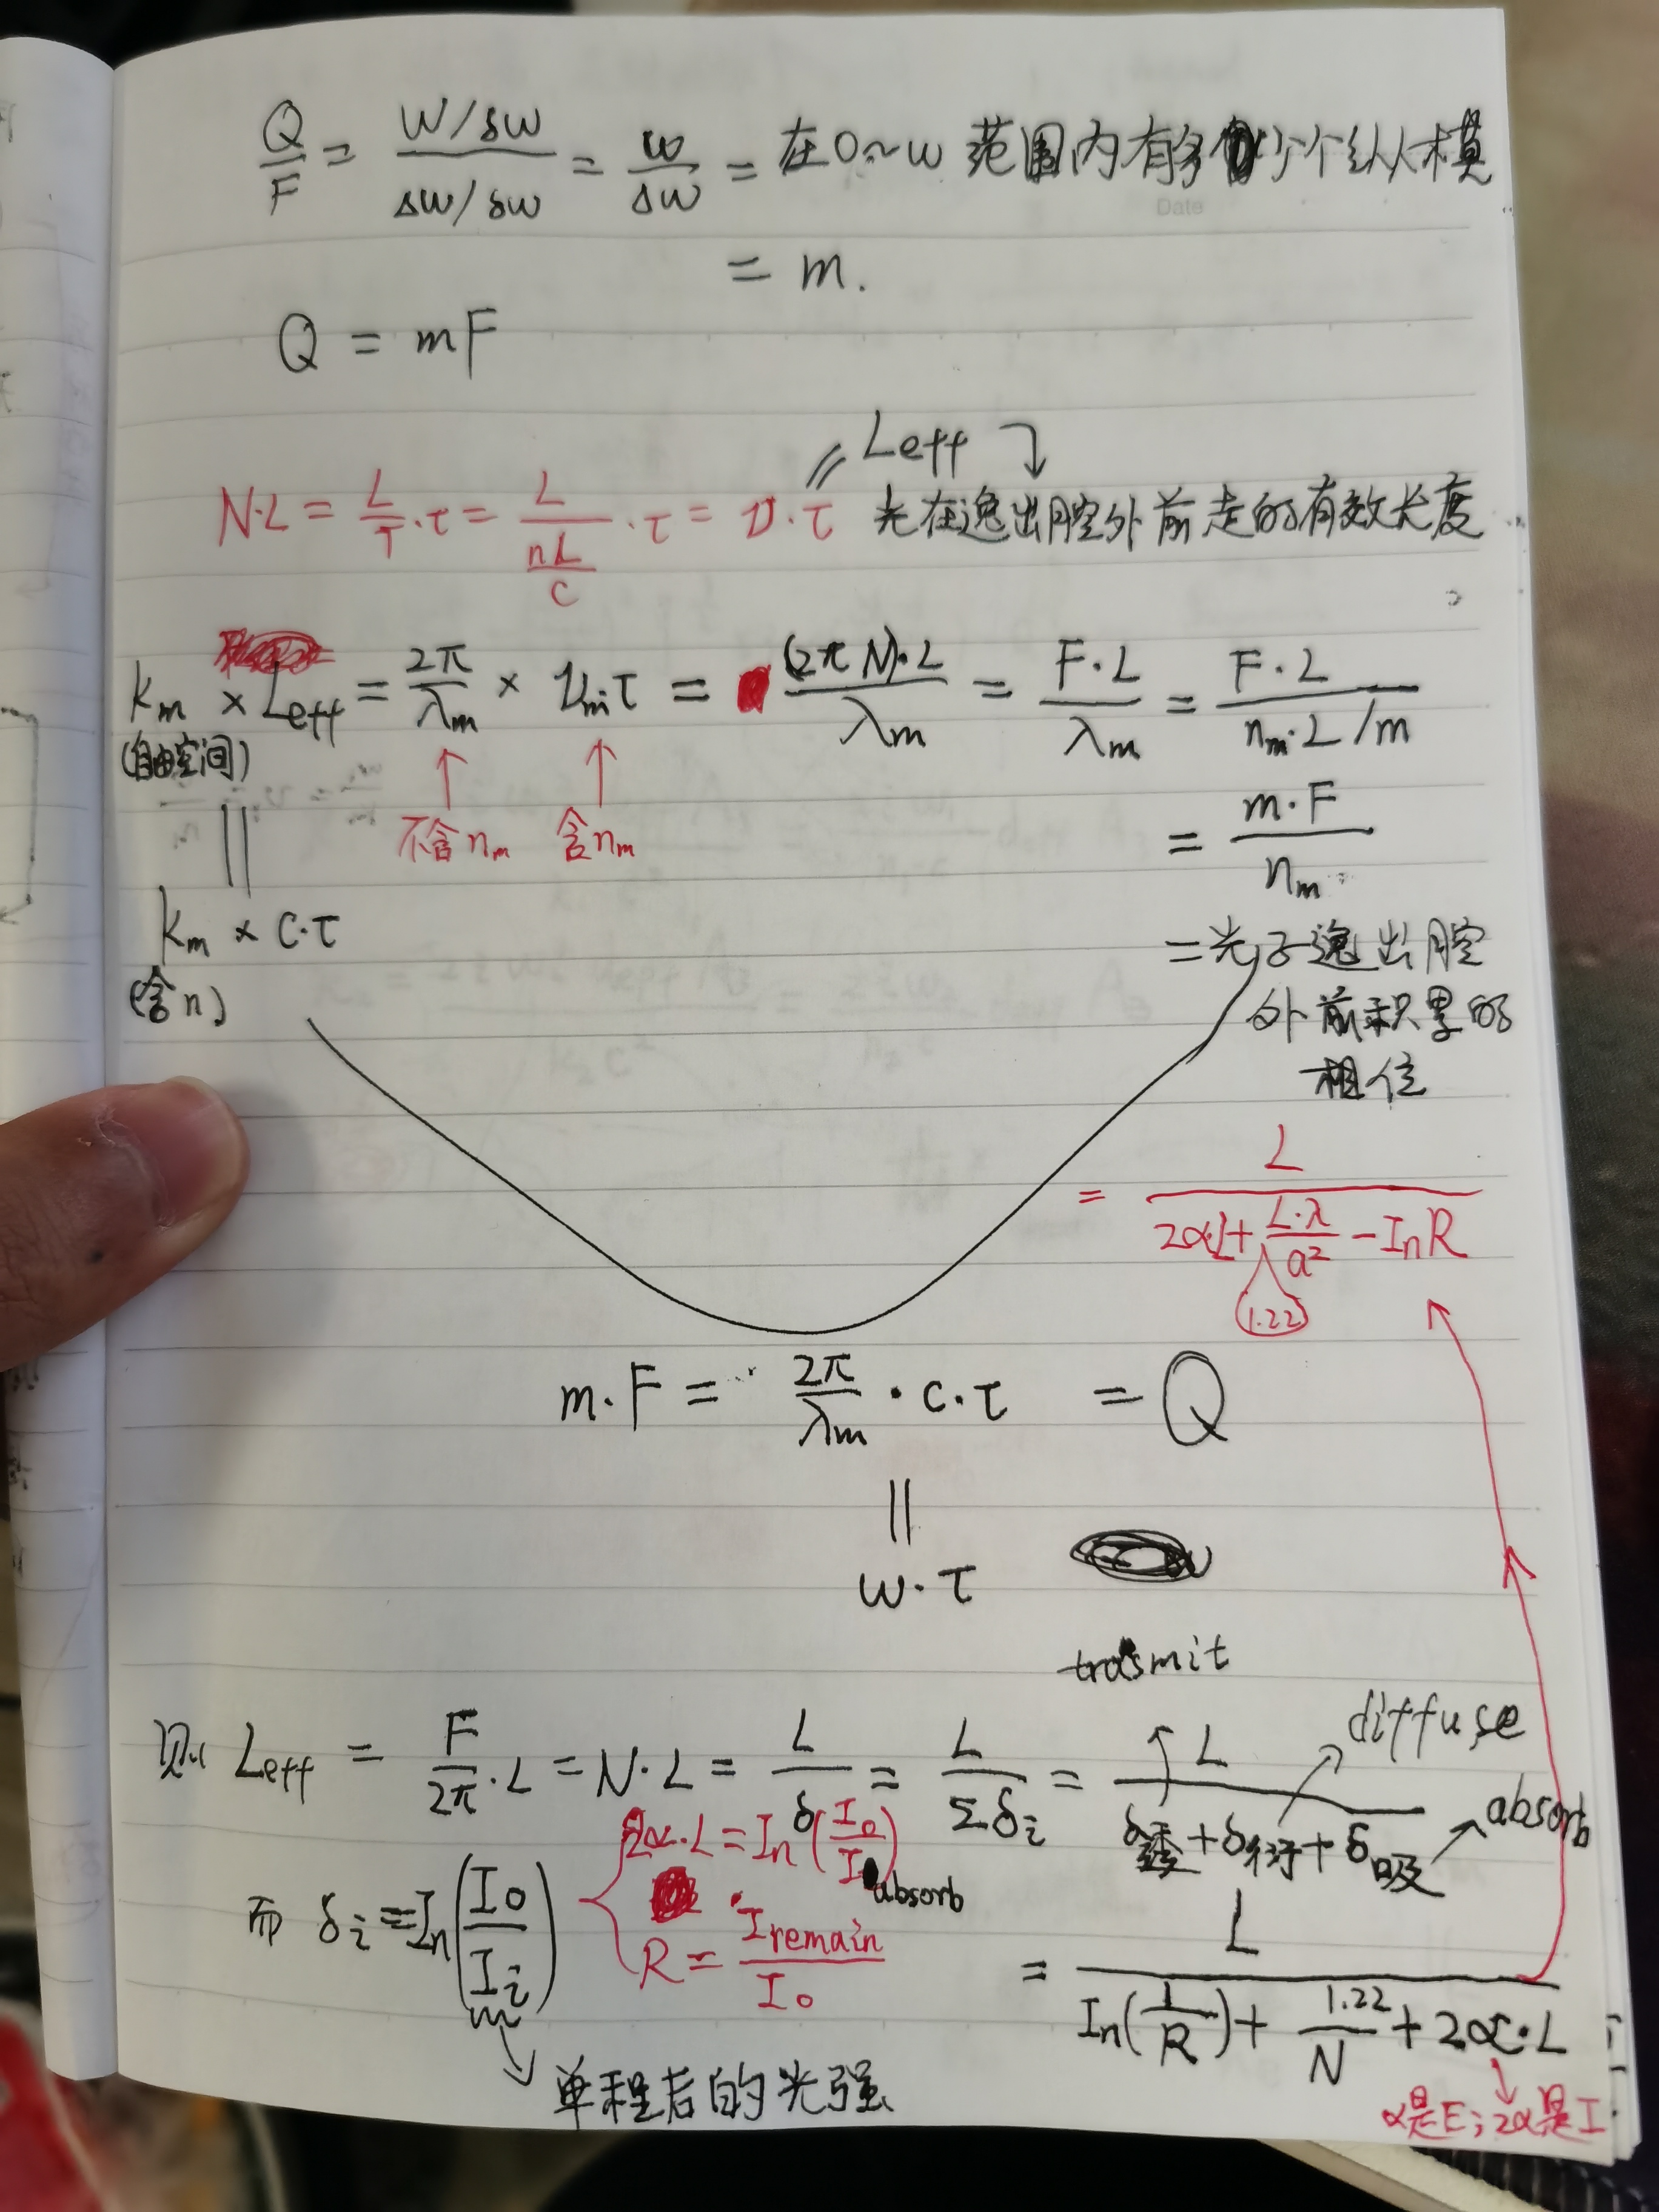 Q/F = (W/δW)/(ΔW/δW) = w/Δw = 在0~w 范围内有多少个纵模
Date
= m.
Q = mF
Leff
N·L = L/T·τ = L/(nL/c)·τ = υ·τ 光在逸出腔外前走的有效长度
km × Leff = 2π/λm × υm τ = (2πN)·L/λm = F·L/λm = F·L/(nm·L/m)
(自由空间)
不含nm 含nm
= m·F/nm
km × c·τ
(含n)
=光子逸出腔
外前积累的
相位
= L/(2α·L + L·λ/a² - In R)
(1.22)
m·F = 2π/λm · c·τ = Q
w·τ
trasmit
diffuse
则 Leff = F/2π·L = N·L = L/δ = L/Σδi = L/(δ透+δ衍+δ吸)
absorb
2α·L = In(I0/I absorb)
而 δi = In(I0/Ii)
R = Iremain/I0
= L/(In(1/R) + 1.22/N + 2α·L)
单程后的光强
α是E; 2α是I